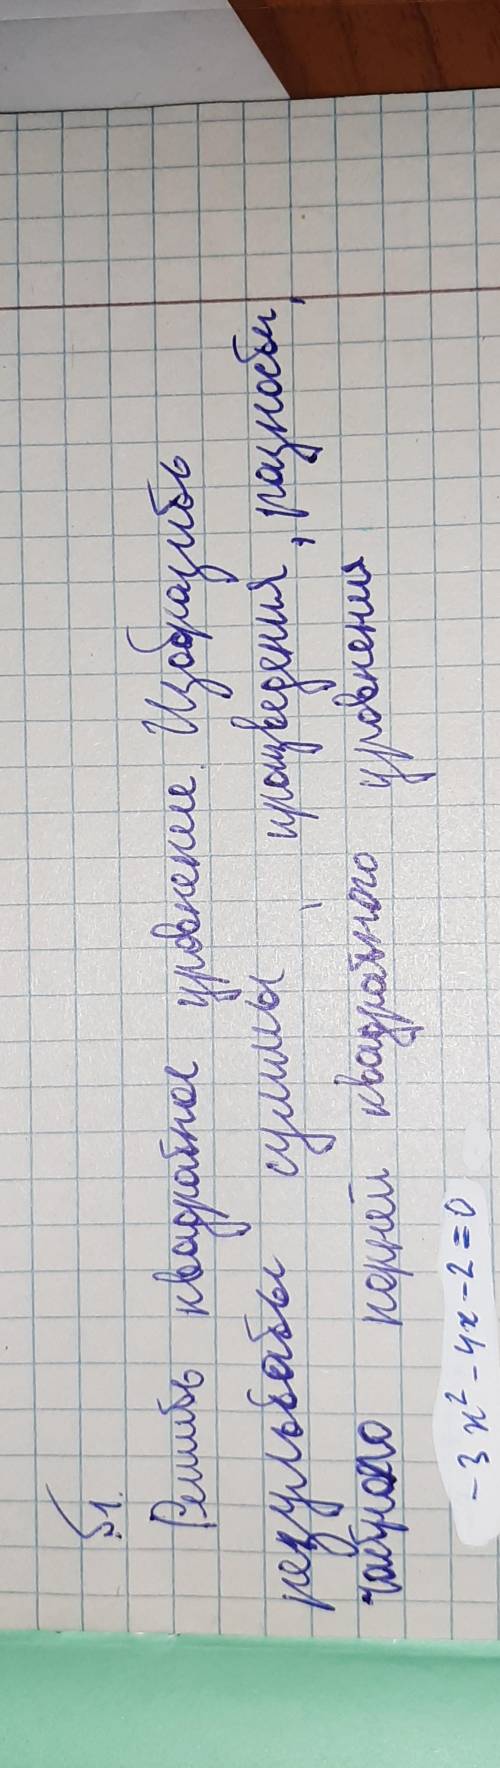 Б1.
Решить квадратное уровнение. Изобразить
результаты суммы, произведения, разности,
частного корней квадратного уровнения
-3x²-4x-2=0